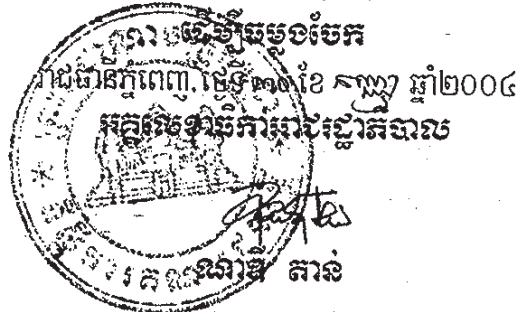 ដើម្បីចម្លងចែក
រាជធានីភ្នំពេញ.ថ្ងៃទី ខែ កញ្ញា ឆ្នាំ២០០៤
អគ្គលេខាធិការរាជរដ្ឋាភិបាល
ណាឌី តាន់